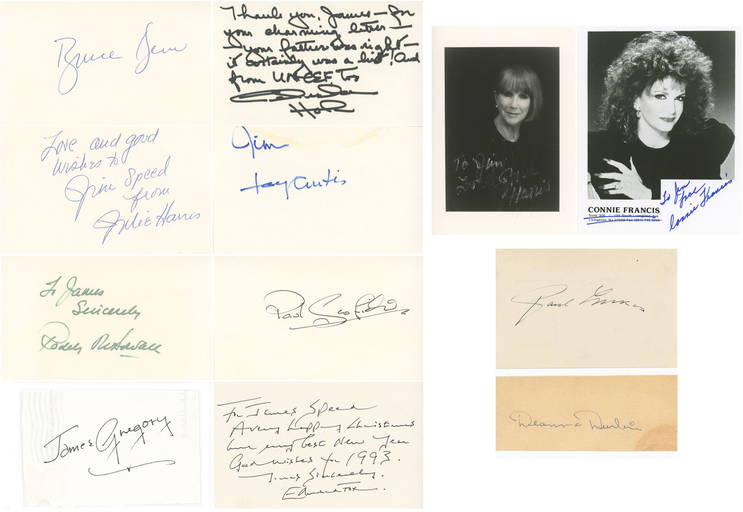 Bruce Dern
Thank you, James – for
your charming letter –
your father was right –
it certainly was a lie! And
from UNICEF too
Love and good
wishes to
Jim Speed
from
Julie Harris
Jim
Tony Curtis
To James
Sincerely
Roddy McDowall
Paul Scofield
James Gregory
For James Speed
A very happy Christmas
and my best New Year
Good wishes for 1993.
Yours Sincerely,
Edward Fox
To Jim
Harris
CONNIE FRANCIS
To Jim
Love
Connie Francis
Paul Lukas
Deanna Durbin